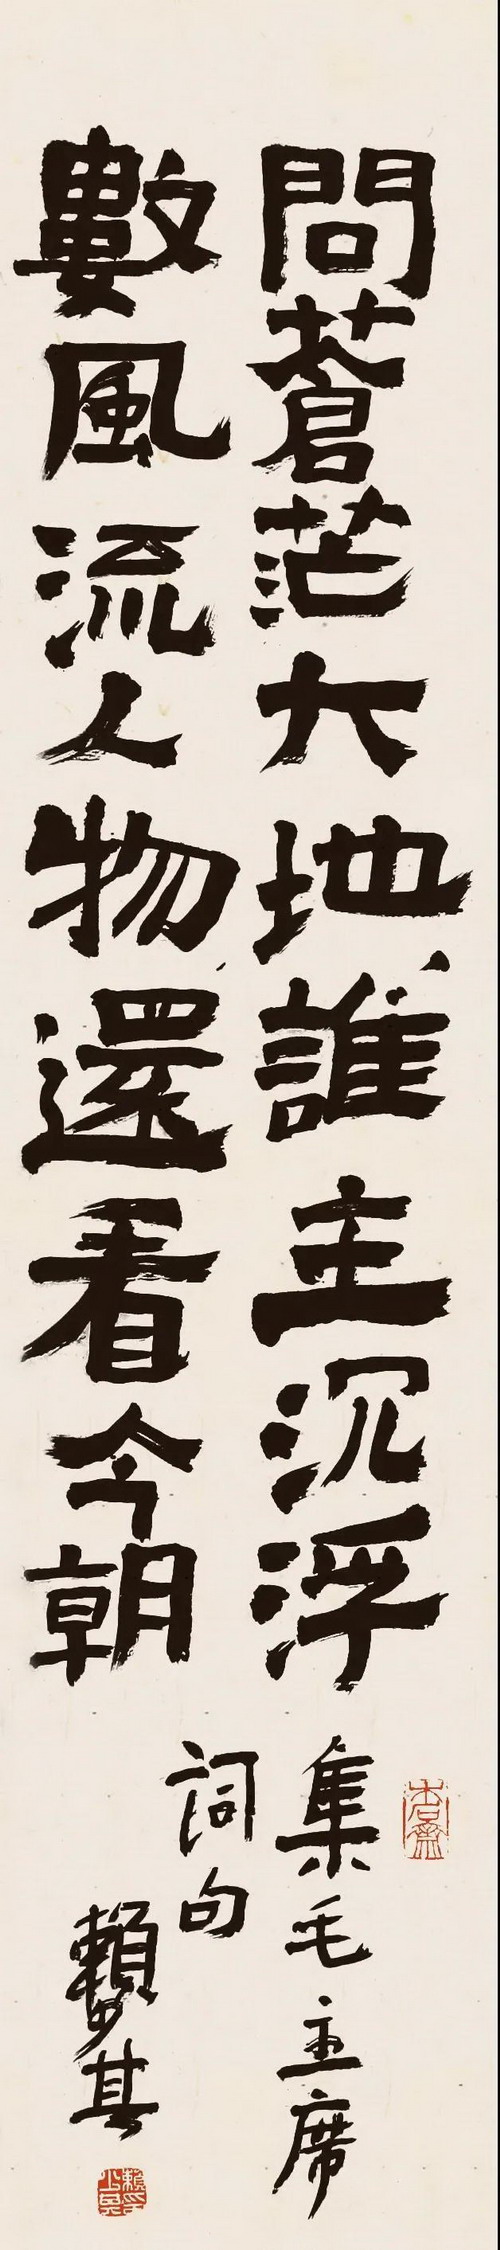 問蒼茫大地誰主沉浮
數風流人物還看今朝
集毛主席
詞句
賴少其
木石齋